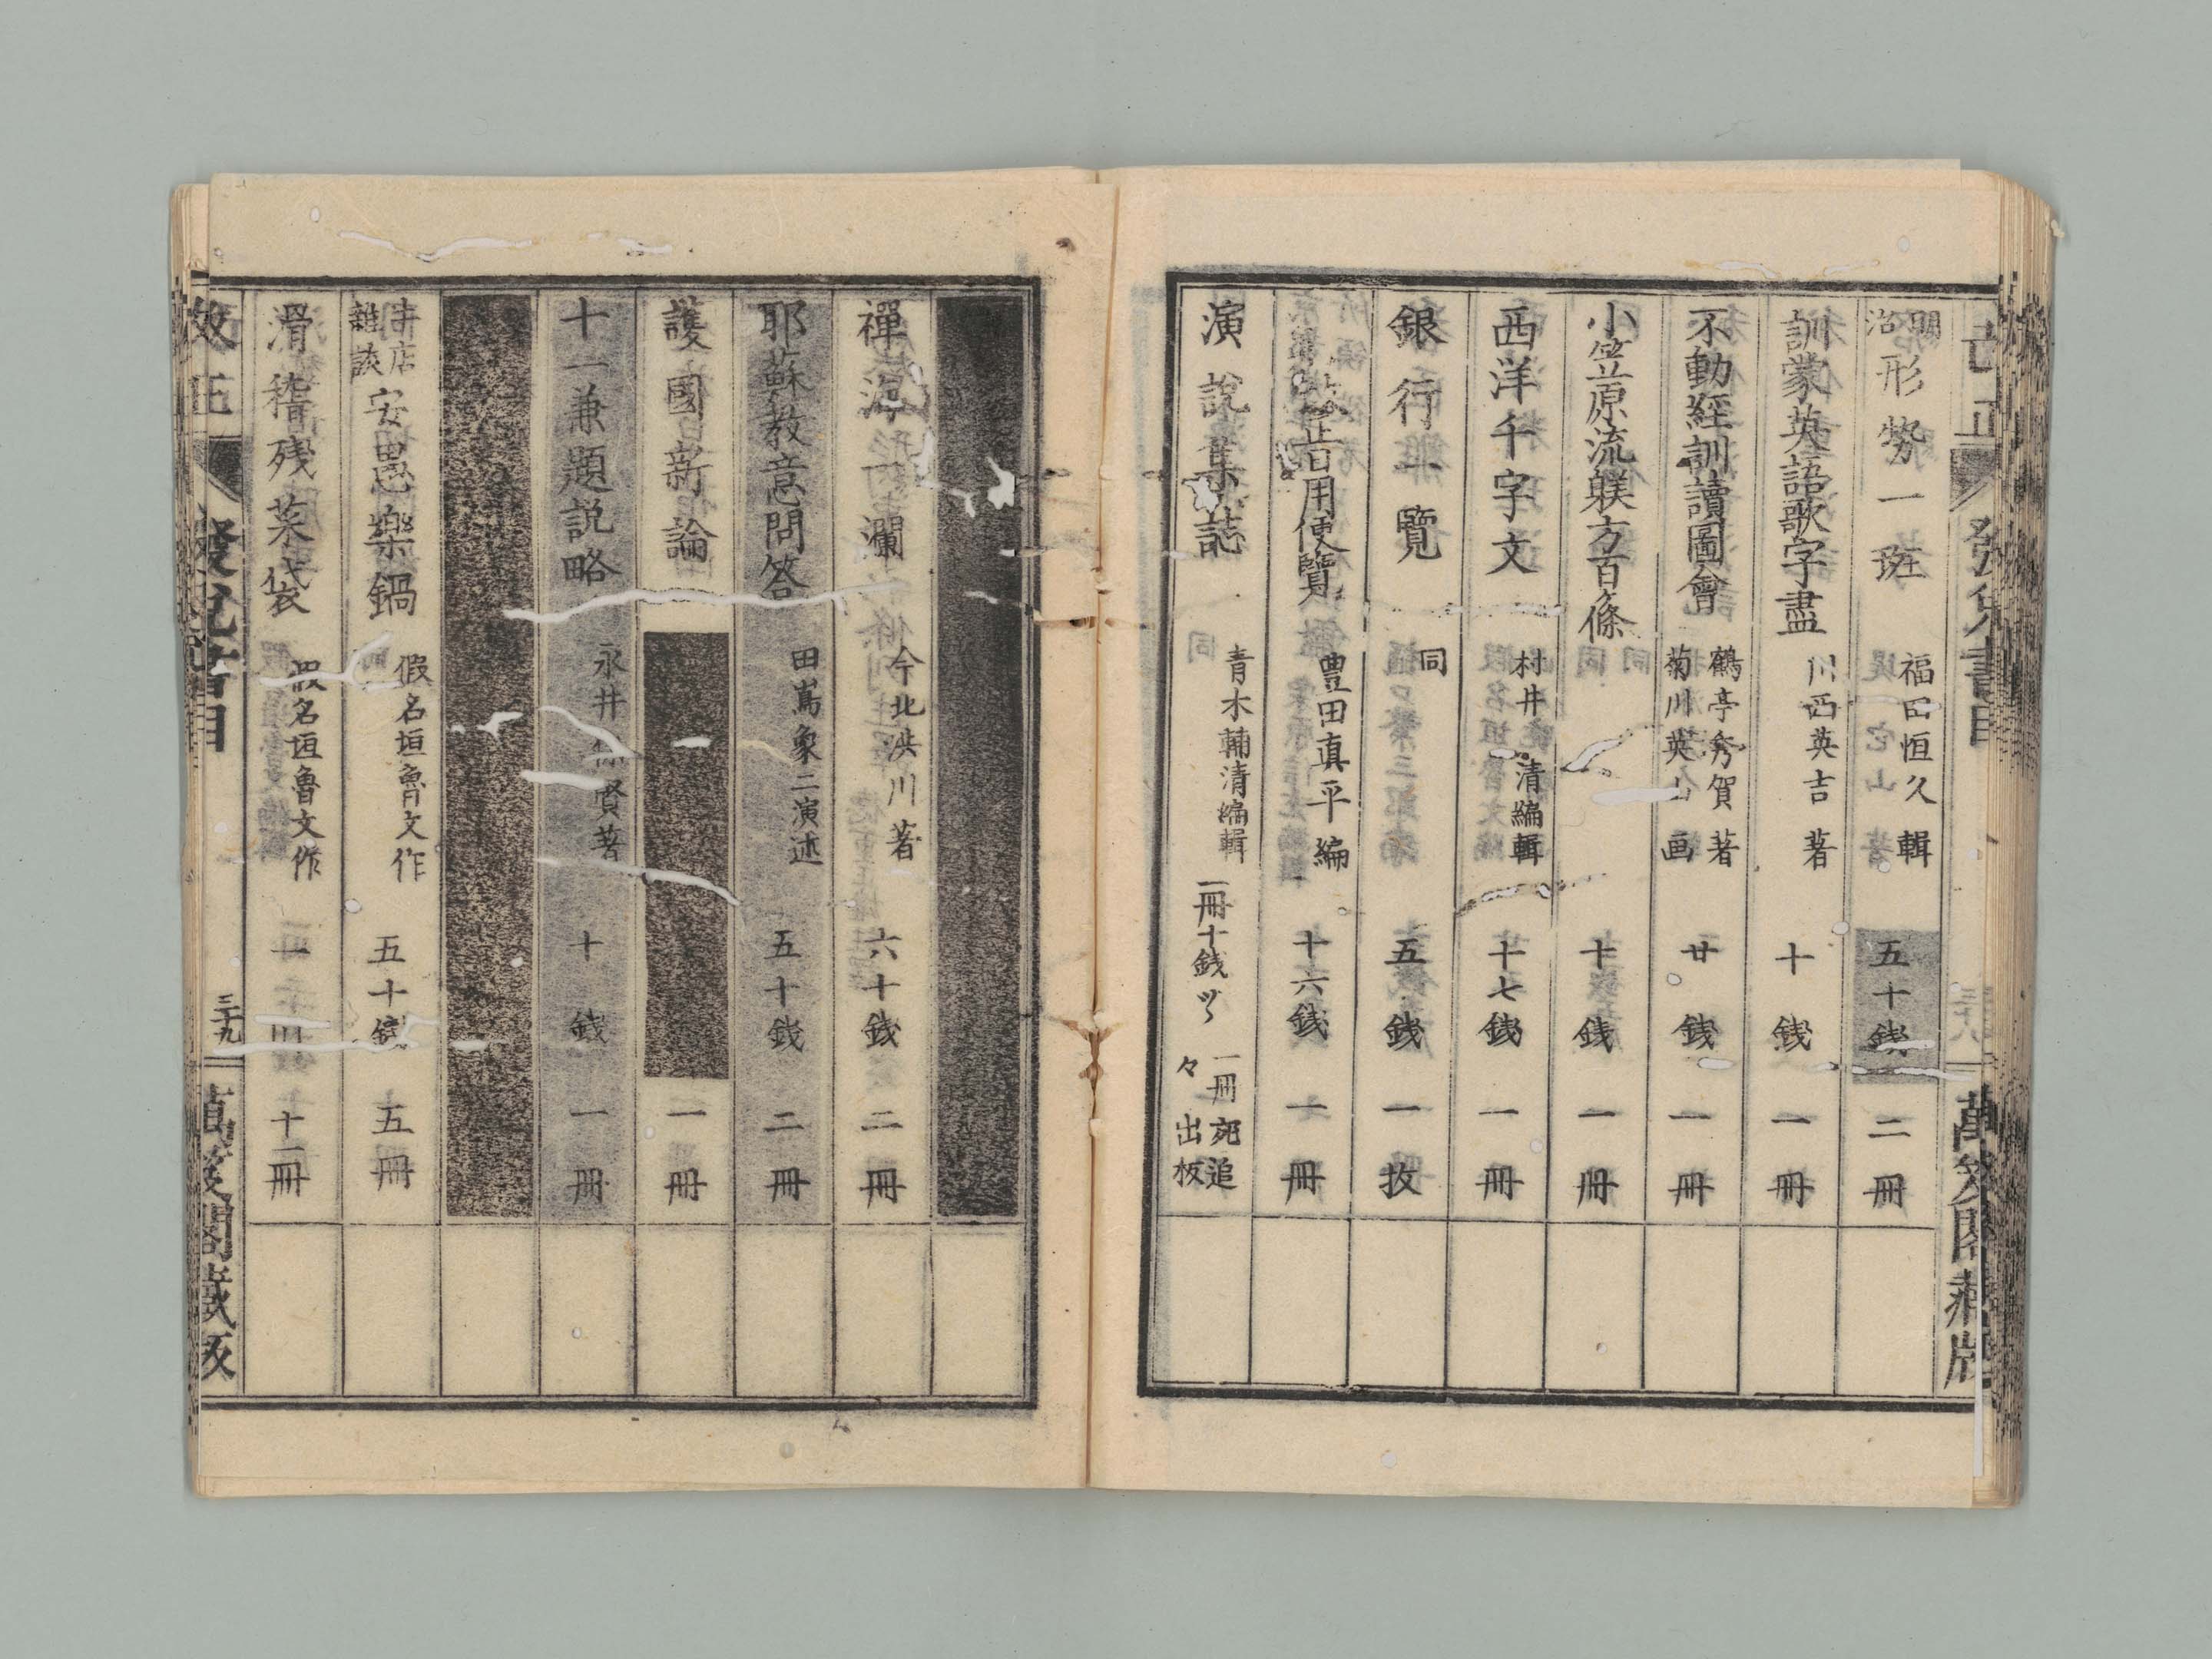 明治 形勢一斑 福田恒久 輯 五十銭 二冊
訓蒙英語歌字盡 川西英吉 著 十銭 一冊
不動經訓讀圖會 鶴亭秀賀 著 菊川英山 画 廿銭 一冊
小笠原流躾方百ケ條 十銭 一冊
西洋千字文 村井清編輯 十七銭 一冊
銀行一覽 同 五銭 一枚
日用便覽 豊田真平 編 十六銭 一冊
演説集誌 青木輔清編輯 一冊十銭ヅヽ 一冊ヨリ追々出板
禪海 瀾 今北洪川著 六十銭 二冊
耶蘇教意問答 田嶌象二演述 五十銭 二冊
護國新論 一冊
十一兼題説略 永井 賢著 十銭 一冊
牛店雜談 安愚樂鍋 假名垣魯文作 五十銭 五冊
滑稽残菜袋 假名垣魯文作 十二冊
改正 發兌書目 三十九 萬笈閣蔵版